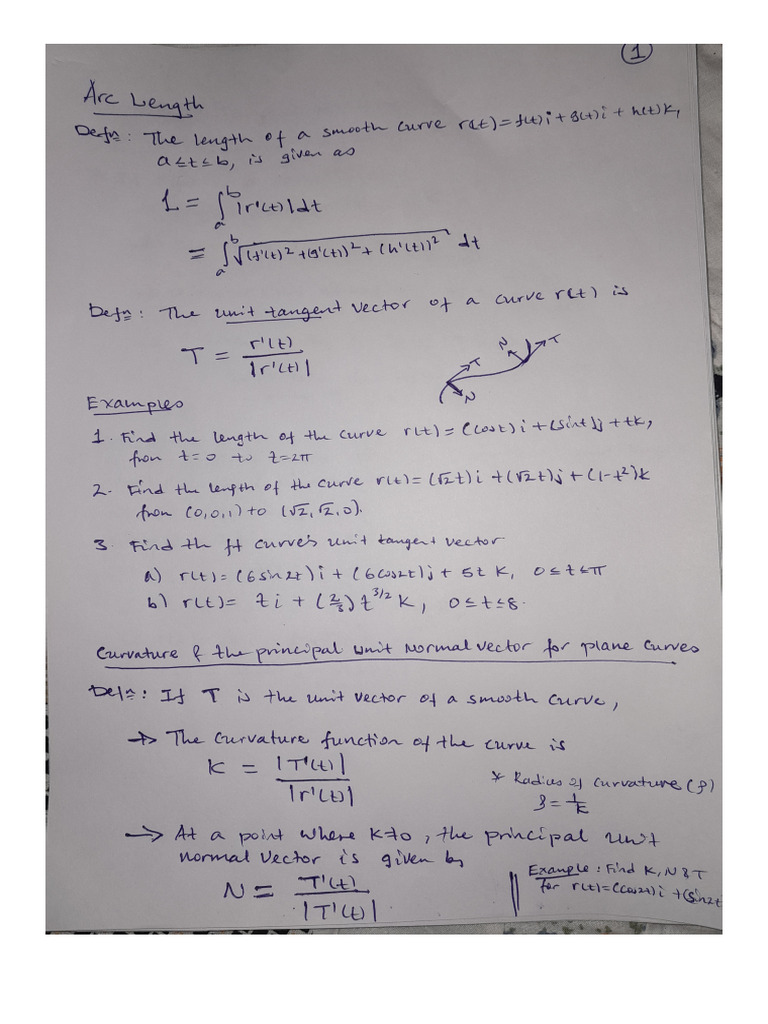 1
Arc Length
Defn: The length of a smooth curve r(t)=f(t)i+g(t)j+h(t)k,
a≤t≤b, is given as
L = ∫ₐᵇ |r'(t)|dt
= ∫ₐᵇ √((f'(t))²+(g'(t))²+(h'(t))²) dt
Defn: The unit tangent vector of a curve r(t) is
T = r'(t) / |r'(t)|
T
N
T
N
Examples
1. Find the length of the curve r(t)=(cost)i+(sint)j+tk,
from t=0 to t=2π
2. Find the length of the curve r(t)=(√2t)i+(√2t)j+(1-t²)k
from (0,0,1) to (√2,√2,0).
3. Find the ft curve's unit tangent vector
a) r(t)=(6sin2t)i+(6cos2t)j+5t k, 0≤t≤π
b) r(t)= ti+(2/3)t^3/2 k, 0≤t≤8.
Curvature & the principal unit Normal vector for plane curves
Defn: If T is the unit vector of a smooth curve,
→ The curvature function of the curve is
K = |T'(t)| / |r'(t)|
* Radius of curvature (ρ)
ρ = 1/K
→ At a point where K≠0, the principal unit
normal vector is given by
N = T'(t) / |T'(t)|
Example: Find K, N & T
for r(t)=(cos2t)i+(sin2t